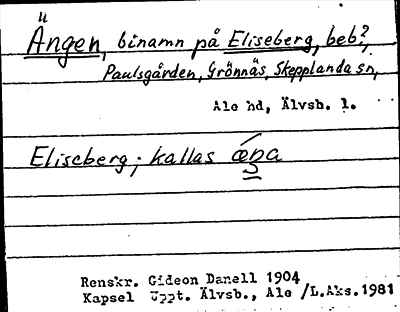 Ängen, binamn på Eliseberg, beb?,
Paulsgården, Grönnäs, Skepplanda sn,
Ale hd, Älvsb. l.
Eliseberg; kallas ǽŋa
Renskr. Gideon Danell 1904
Kapsel Uppt. Älvsb., Ale /L.Aks.1981